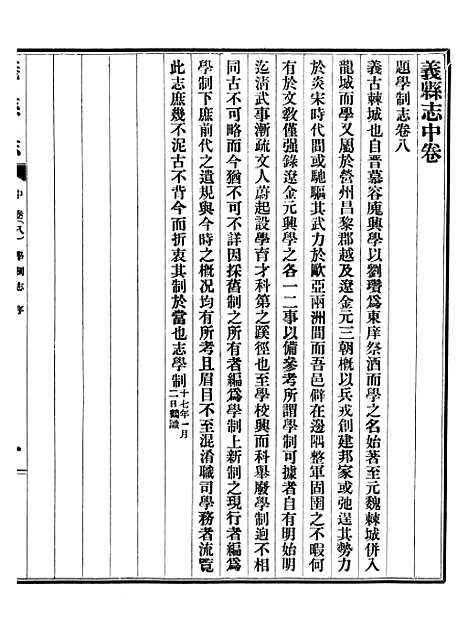 義縣志中卷
題學制志卷八
義古棘城也自晋慕容廆興學以劉瓚爲東庠祭酒而學之名始著至元魏棘城併入
龍城而學又屬於營州昌黎郡越及遼金元三朝概以兵戎創建邦家或弛逞其勢力
於炎宋時代間或馳驅其武力於歐亞兩洲間而吾邑僻在邊隅整軍固圉之不暇何
有於文敎僅强錄遼金元興學之各一二事以備參考所謂學制可據者自有明始明
迄淸武事漸疏文人蔚起設學育才科第之蹊徑也至學校興而科舉廢學制逈不相
同古不可略而今猶不可不詳因採舊制之所有者編爲學制上新制之現行者編爲
學制下庶前代之遺規與今時之概况均有所考且眉目不至混淆職司學務者流覽
此志庶幾不泥古不背今而折衷其制於當也志學制十七年一月
二日鶴識
中卷(八)學制志 序